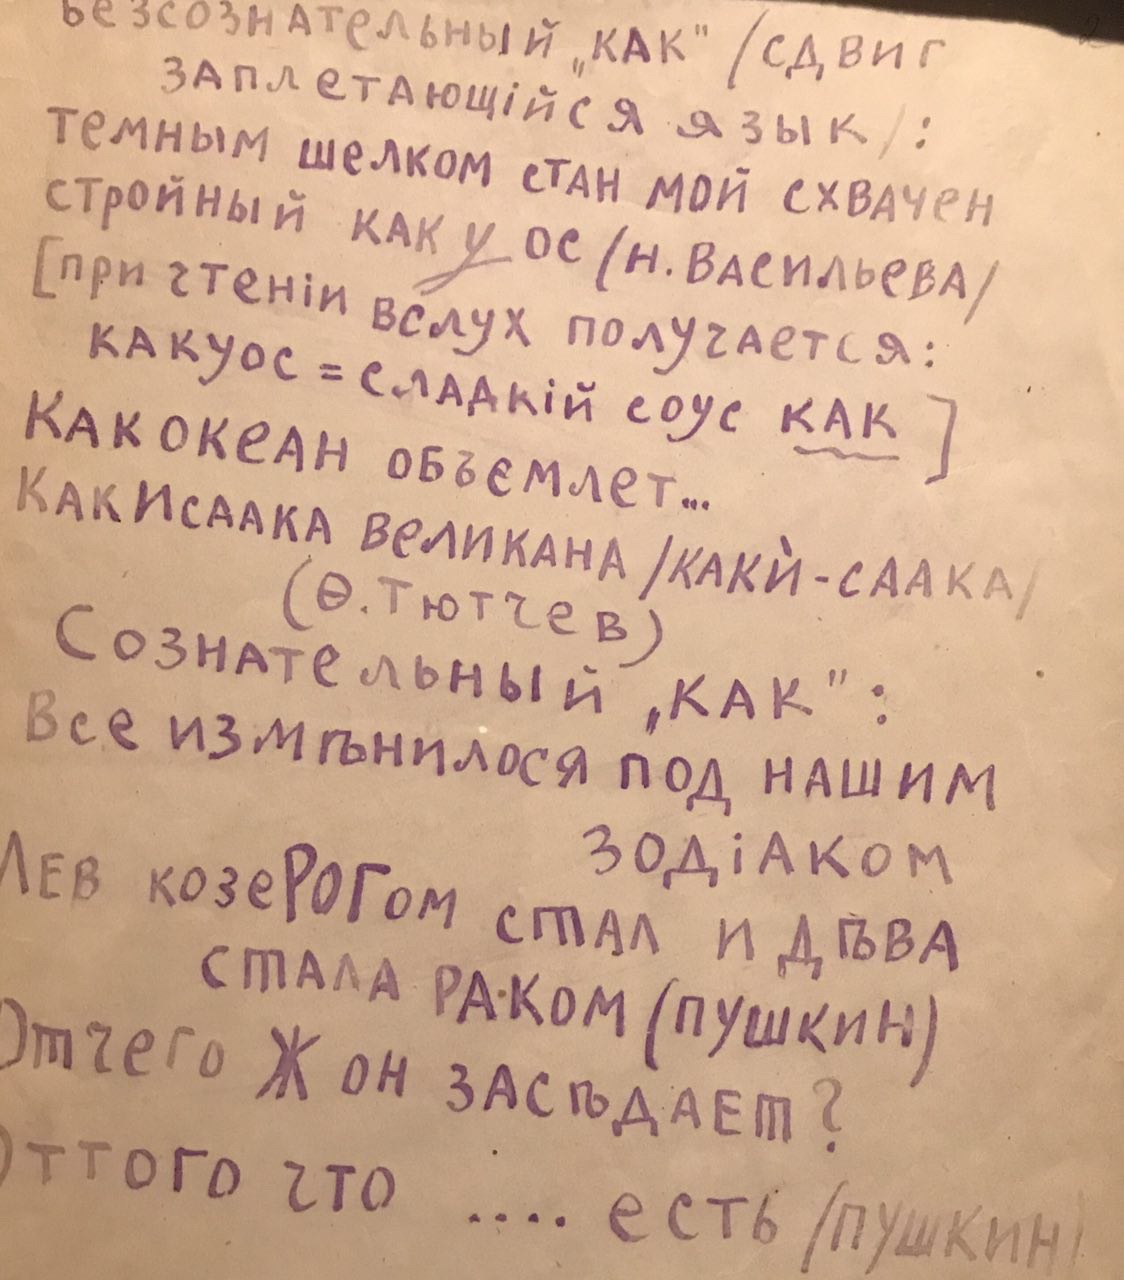 безсознательный „как" /сдвиг
заплетающійся язык/:
темным шелком стан мой схвачен
стройный как у ос /н. Васильева/
[при чтеніи вслух получается:
какуос = сладкій соус как]
Какокеан объемлет...
КакИсаака великана /какѝ-саака/
(Ѳ. Тютчев)
Сознательный „как":
Все измѣнилося под нашим
зодіаком
Лев козеРОГом стал и дѣва
стала ра·ком (пушкин)
Отчего Ж он засѣдает?
Оттого что .... есть /пушкин/